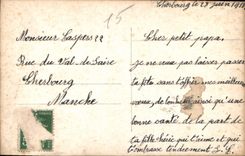 Cherbourg le 23 juin
15
Monsieur
Rue du Val de Saire
Cherbourg
Manche
Cher petit papa,
Je ne veux pas laisser passer
ta fête sans t'offrir mes meilleurs
voeux de bonheur ainsi qu'une
bonne santé de la part de
ta fille chérie qui t'aime et qui
t'embrasse tendrement